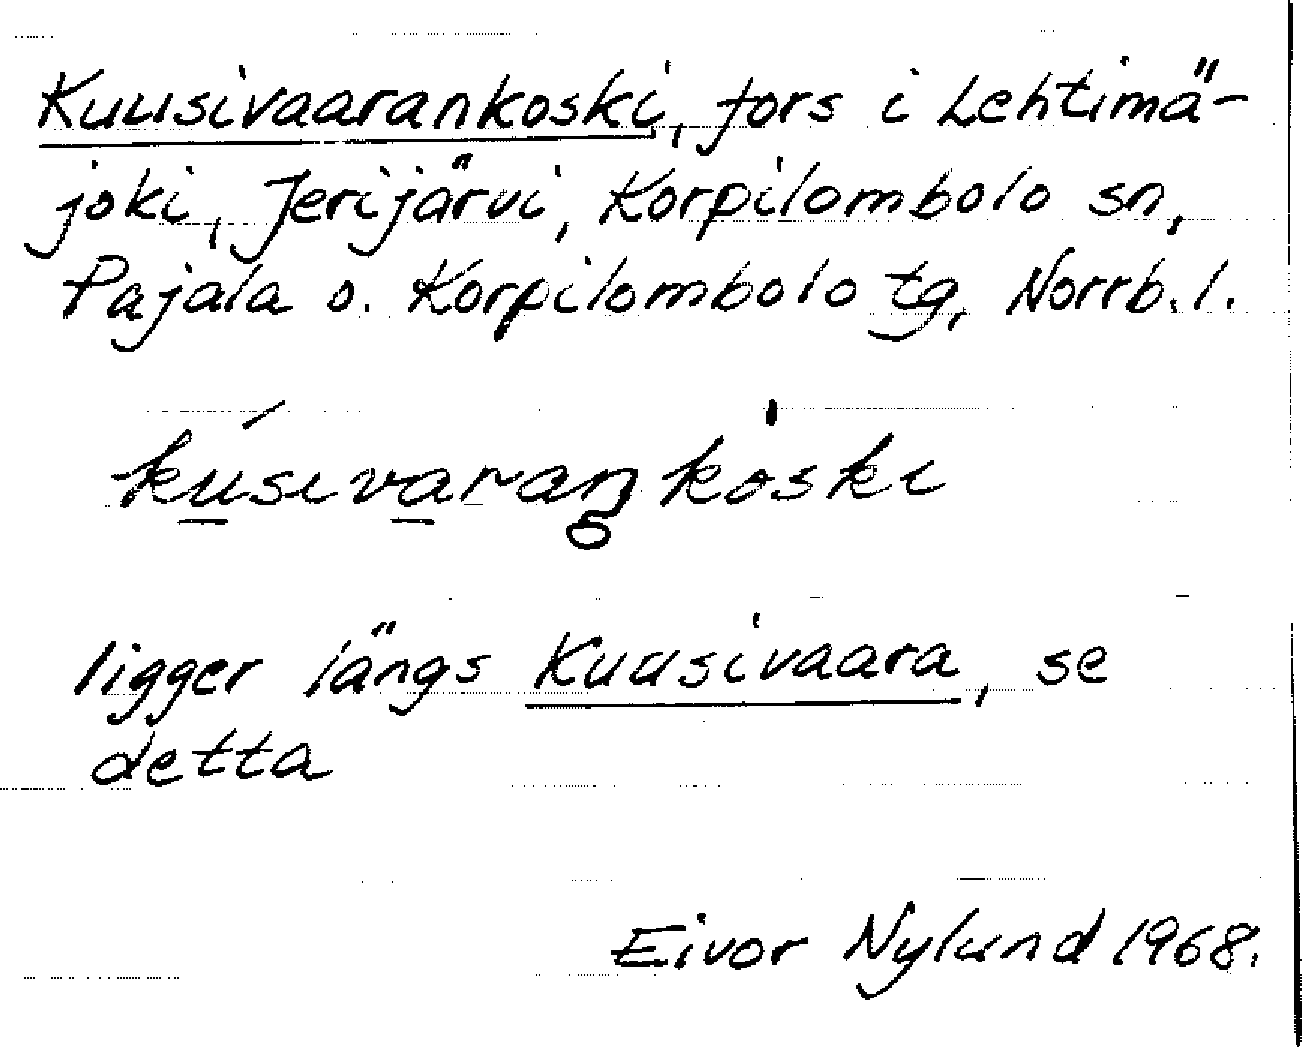 Kuusivaarankoski, fors i Lehtimä-
joki, Jerijärvi, Korpilombolo sn,
Pajala o. Korpilombolo tg, Norrb.l.
kú̱siva̱raŋkòski
ligger längs Kuusivaara, se
detta
Eivor Nylund 1968.